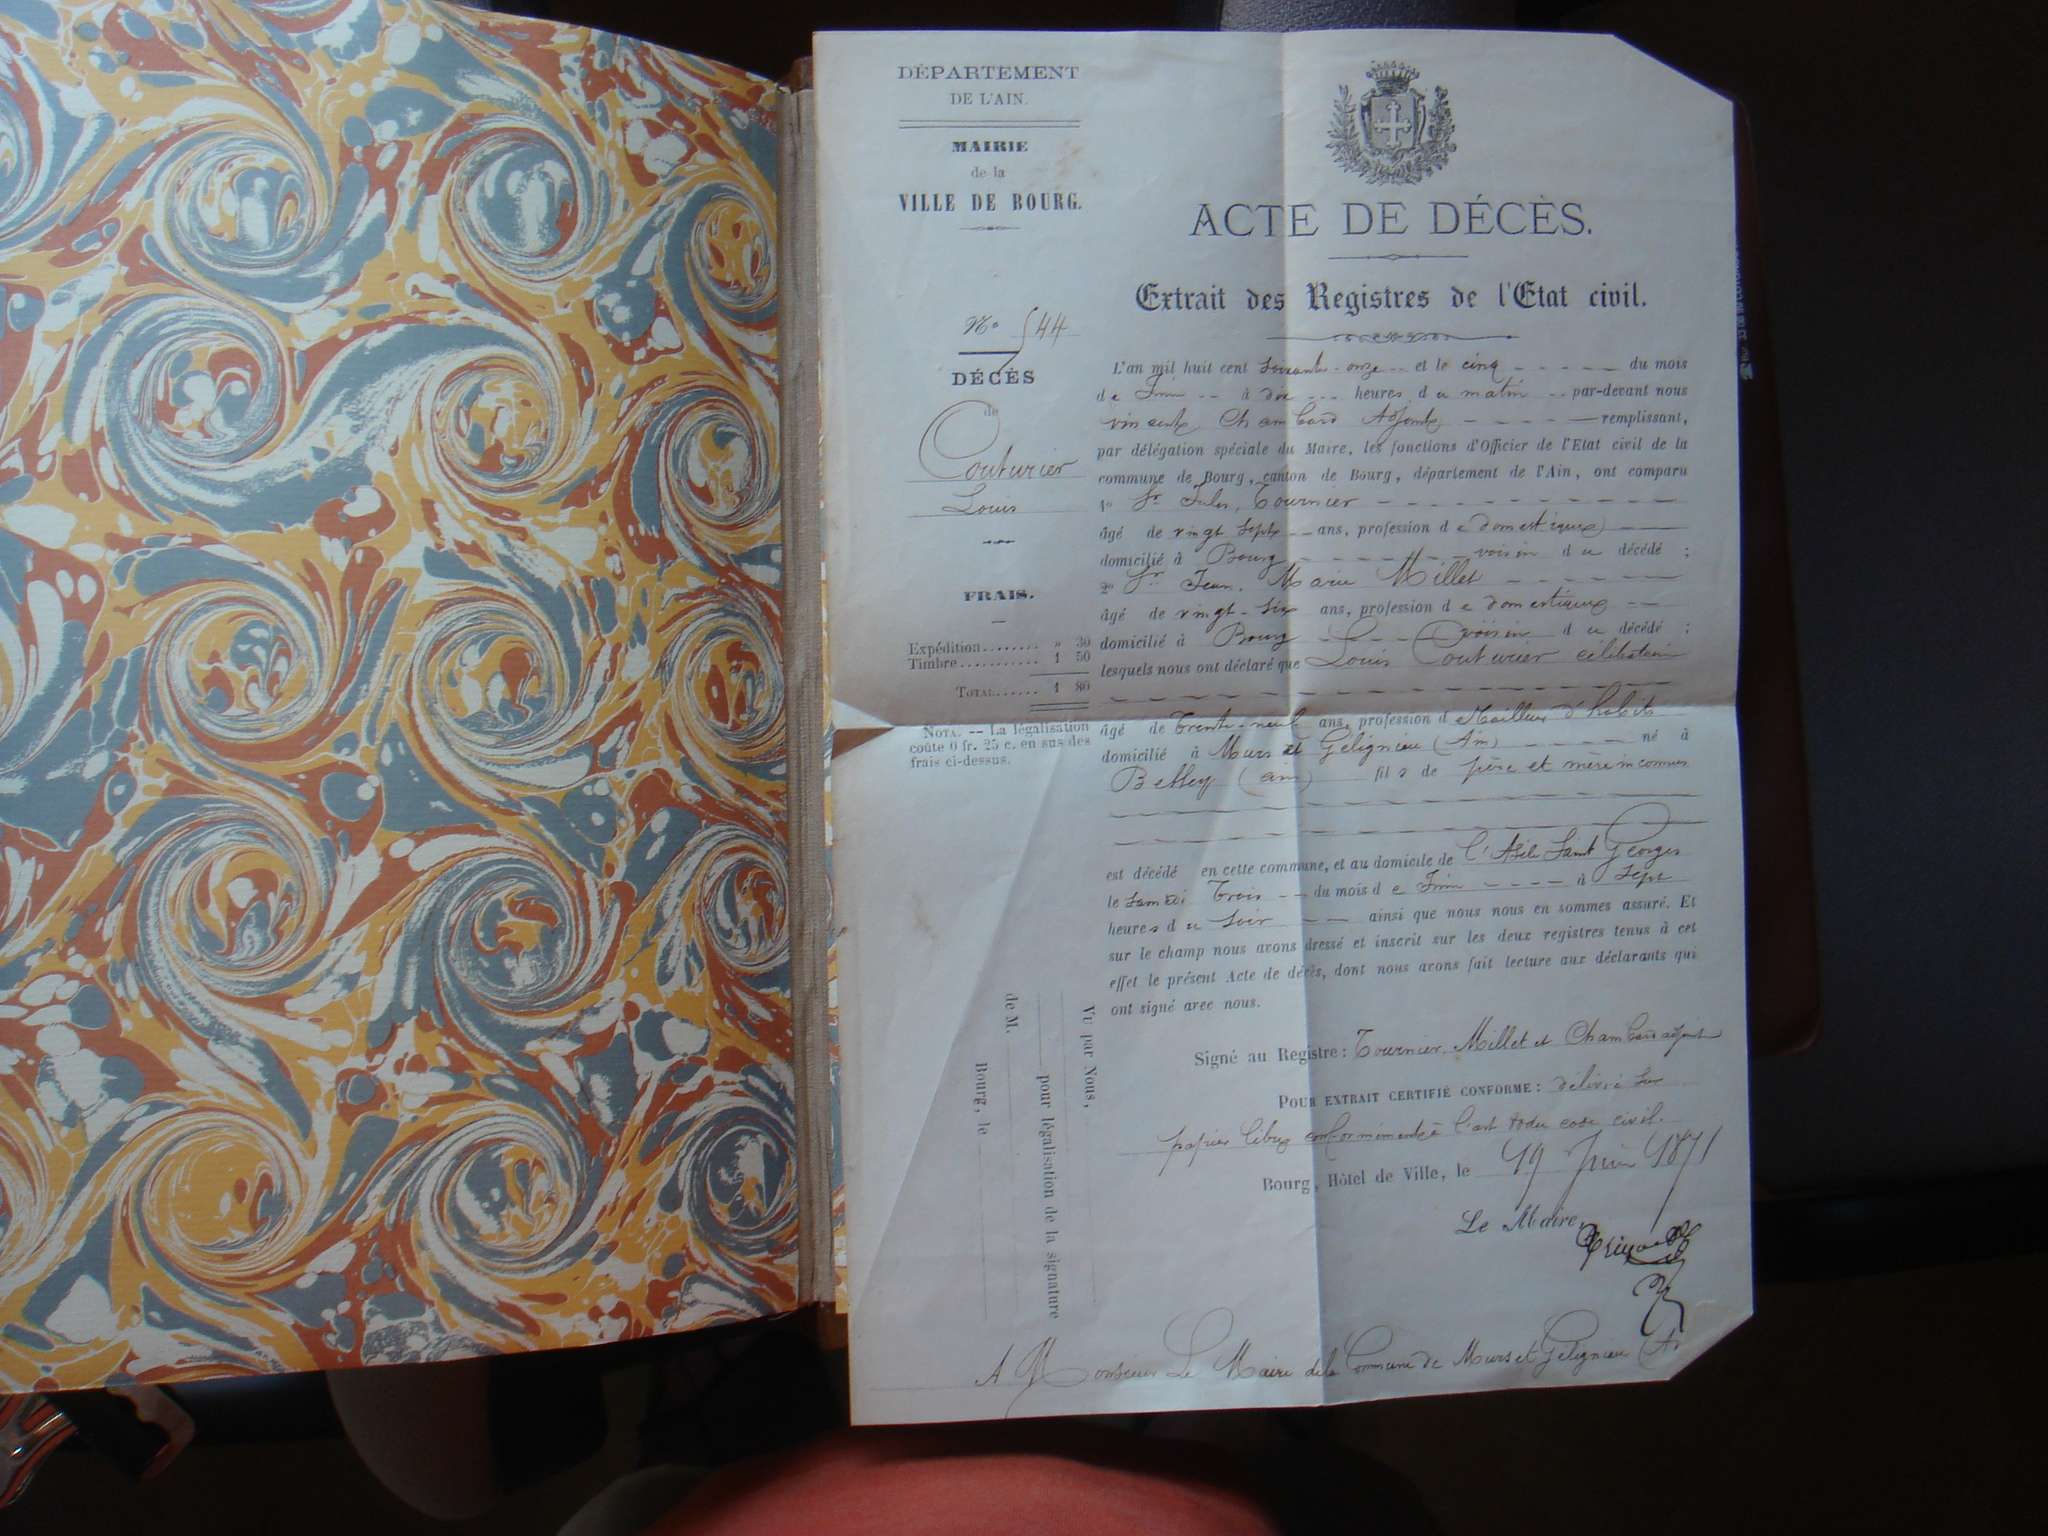 DÉPARTEMENT
DE L'AIN.
MAIRIE
de la
VILLE DE BOURG.
No 544
DÉCÈS
de
Couturier
Louis
FRAIS.
Expédition........ » 30
Timbre........... 1 50
TOTAL...... 1 80
NOTA. — La légalisation
coûte 0 fr. 25 c. en sus des
frais ci-dessus.
ACTE DE DÉCÈS.
Extrait des Registres de l'Etat civil.
L'an mil huit cent soixante-onze et le cinq du mois
de Juin à dix heures du matin par-devant nous
Vincent Chambard Adjoint remplissant,
par délégation spéciale du Maire, les fonctions d'Officier de l'Etat civil de la
commune de Bourg, canton de Bourg, département de l'Ain, ont comparu
1o Sr Jules, Tournier
âgé de vingt sept ans, profession de domestique
domicilié à Bourg voisin du décédé ;
2o Sr Jean, Marie Millet
âgé de vingt-six ans, profession de domestique
domicilié à Bourg voisin du décédé ;
lesquels nous ont déclaré que Louis Couturier célibataire
âgé de Trente-neuf ans, profession de Tailleur d'habits
domicilié à Murs et Gelignieu (Ain) né à
Belley (ain) fils de père et mère inconnus
est décédé en cette commune, et au domicile de l'Asile Saint Georges
le samedi Trois du mois de Juin à Sept
heures du Soir ainsi que nous nous en sommes assuré. Et
sur le champ nous avons dressé et inscrit sur les deux registres tenus à cet
effet le présent Acte de décès, dont nous avons fait lecture aux déclarants qui
ont signé avec nous.
Signé au Registre : Tournier, Millet et Chambard adjoint
POUR EXTRAIT CERTIFIÉ CONFORME : délivré sur
papier libre conformément à l'art du code civil.
Bourg, Hôtel de Ville, le 19 Juin 1871
Le Maire,
Vu par Nous,
pour légalisation de la signature
de M.
Bourg, le
A Monsieur Le Maire de la Commune de Murs et Gelignieu